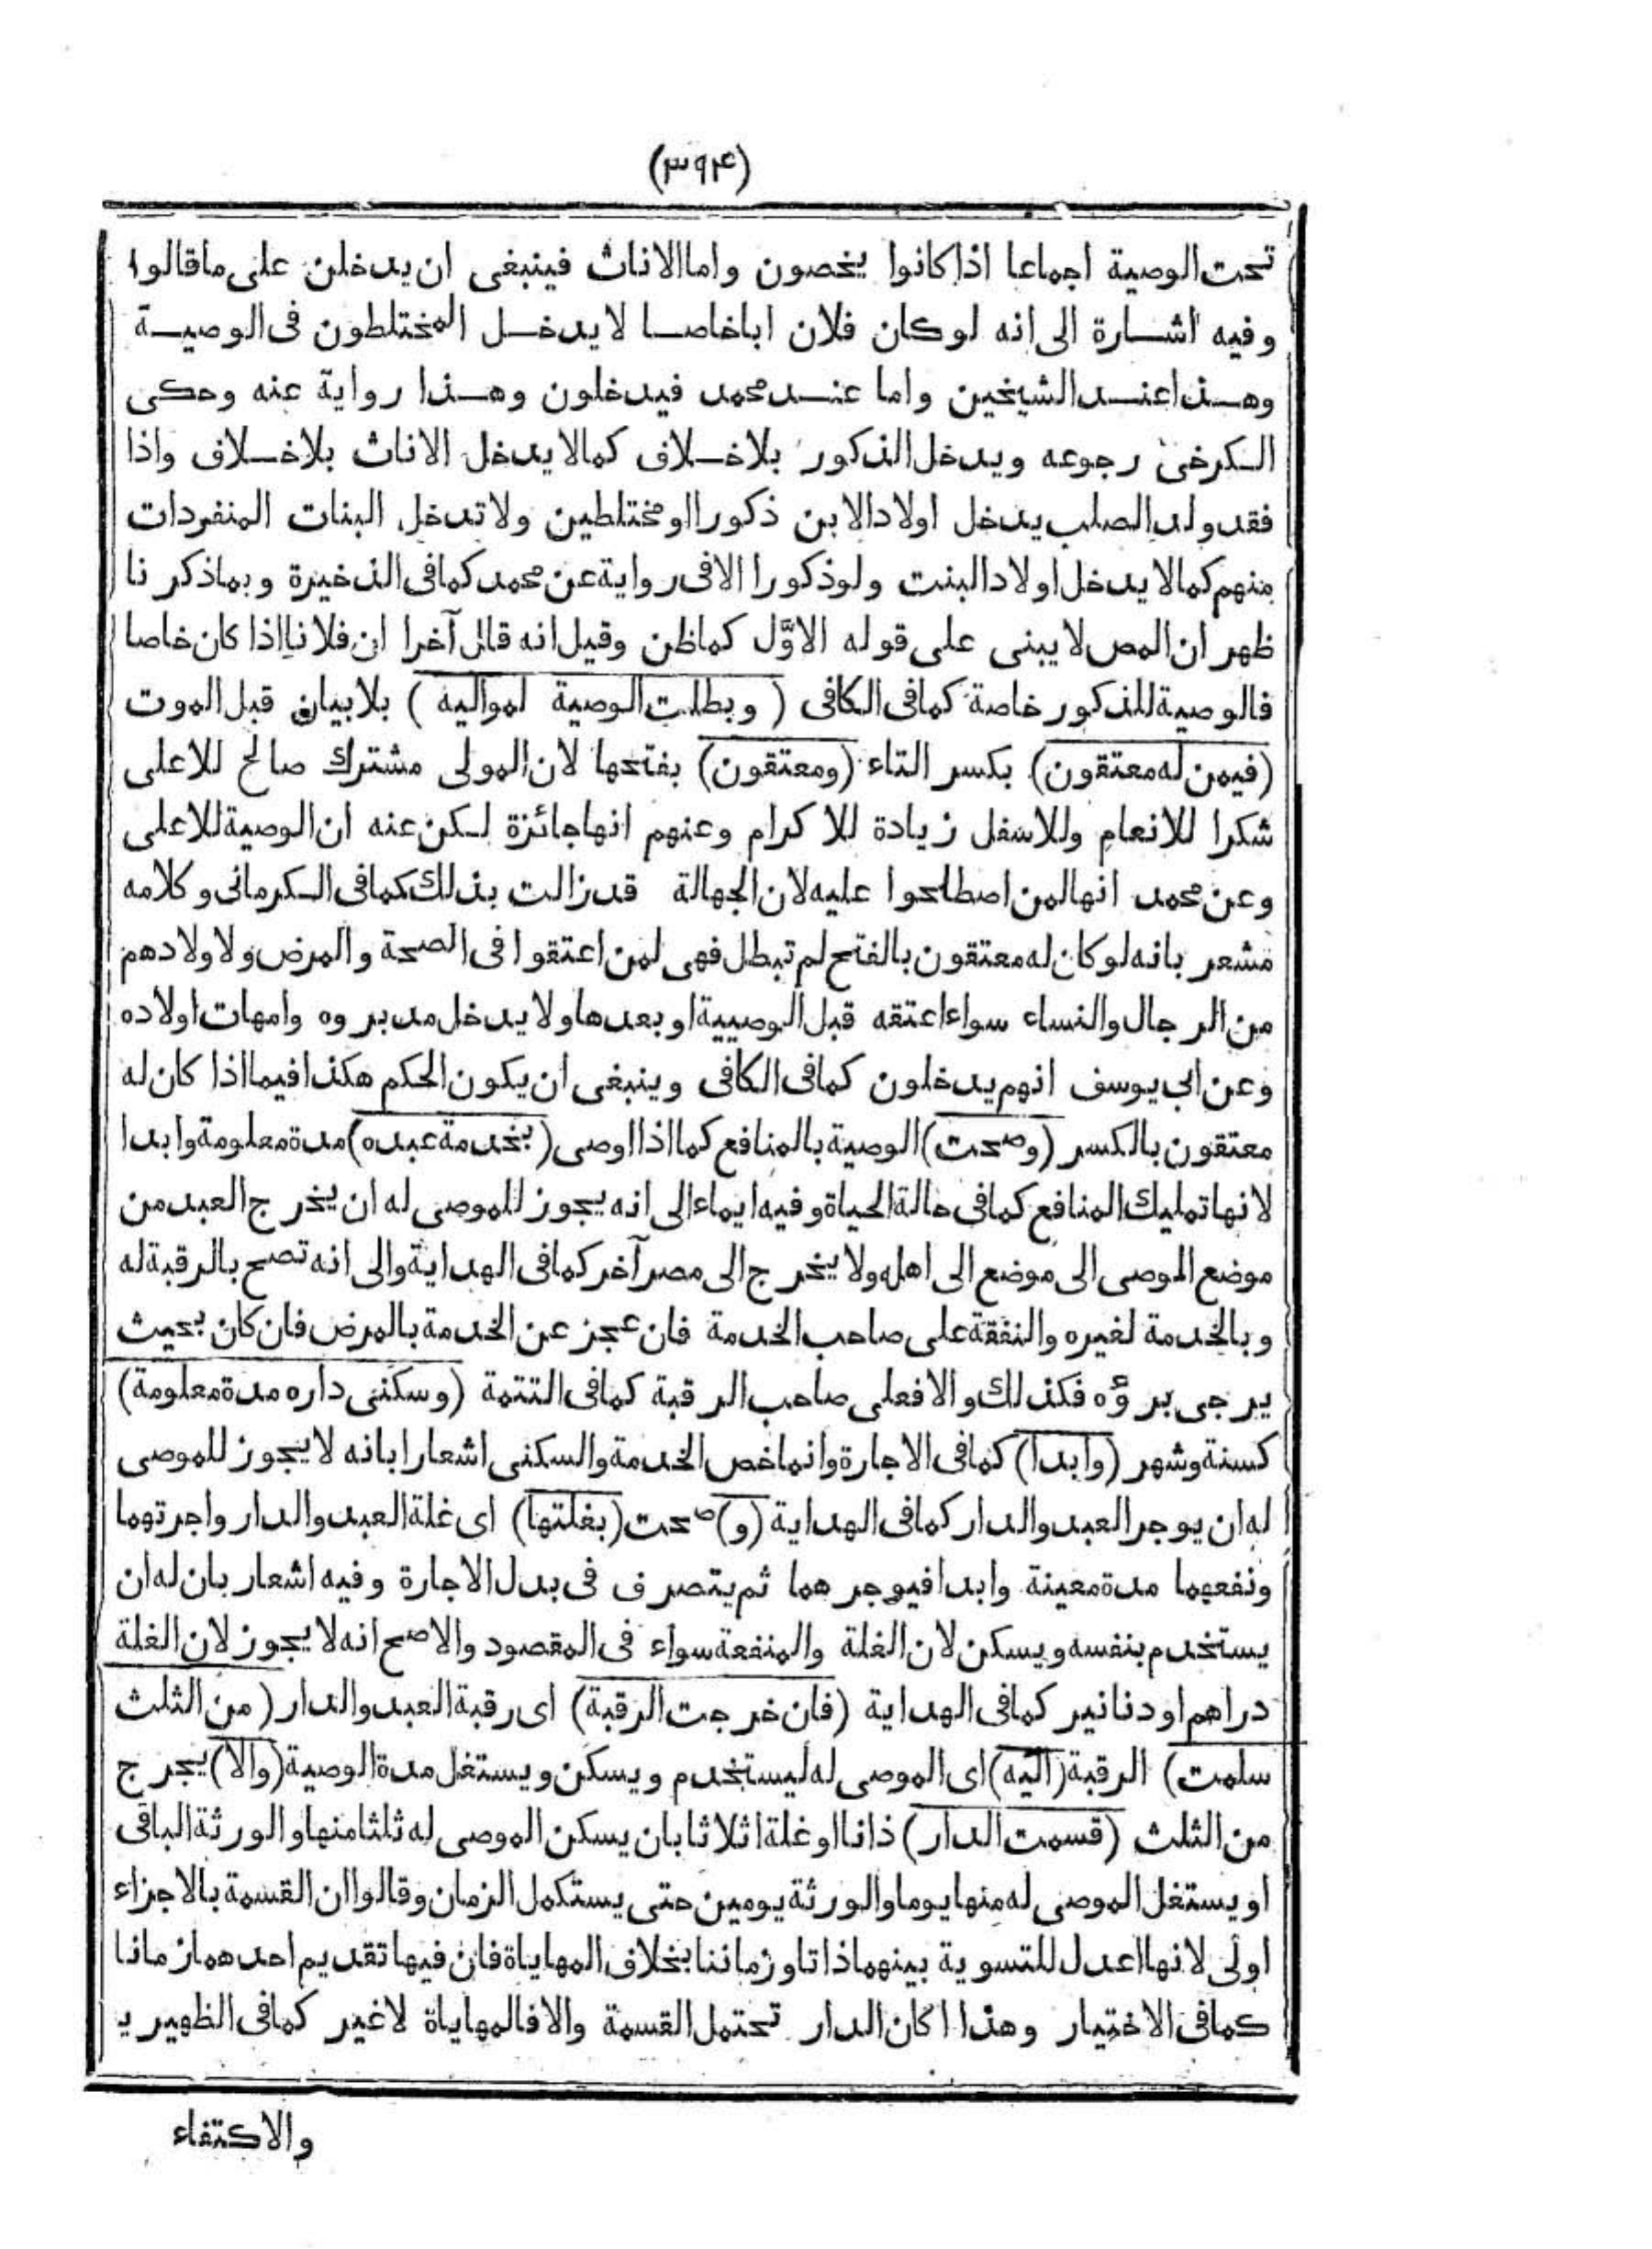 (٣٩۴)
تحت الوصية اجماعا اذا كانوا يخصون واما الاناث فينبغى ان يدخلن على ما قالوا
وفيه اشارة الى انه لو كان فلان ابا خاصا لا يدخل المختلطون فى الوصية
وهذا عند الشيخين واما عند محمد فيدخلون وهذا رواية عنه وحكى
الكرخى رجوعه ويدخل الذكور بلا خلاف كما لا يدخل الاناث بلا خلاف واذا
فقد ولد الصلب يدخل اولاد الابن ذكورا او مختلطين ولا تدخل البنات المنفردات
منهم كما لا يدخل اولاد البنت ولو ذكورا الا فى رواية عن محمد كما فى الذخيرة وبما ذكرنا
ظهر ان المص لا يبنى على قوله الاوّل كما ظن وقيل انه قال آخرا ان فلانا اذا كان خاصا
فالوصية للذكور خاصة كما فى الكافى (وبطلت الوصية لمواليه) بلا بيان قبل الموت
(فيمن له معتقون) بكسر التاء (ومعتقون) بفتحها لان المولى مشترك صالح للاعلى
شكرا للانعام وللاسفل زيادة للاكرام وعنهم انها جائزة لكن عنه ان الوصية للاعلى
وعن محمد انها لمن اصطلحوا عليه لان الجهالة قد زالت بذلك كما فى الكرمانى وكلامه
مشعر بانه لو كان له معتقون بالفتح لم تبطل فهى لمن اعتقوا فى الصحة والمرض ولاولادهم
من الرجال والنساء سواء اعتقه قبل الوصيية او بعدها ولا يدخل مدبروه وامهات اولاده
وعن ابى يوسف انهم يدخلون كما فى الكافى وينبغى ان يكون الحكم هكذا فيما اذا كان له
معتقون بالكسر (وصحت) الوصية بالمنافع كما اذا اوصى (بخدمة عبده) مدة معلومة وابدا
لانها تمليك المنافع كما فى حالة الحياة وفيه ايماء الى انه يجوز للموصى له ان يخرج العبد من
موضع الموصى الى موضع الى اهله ولا يخرج الى مصر آخر كما فى الهداية والى انه تصح بالرقبة له
وبالخدمة لغيره والنفقة على صاحب الخدمة فان عجز عن الخدمة بالمرض فان كان بحيث
يرجى برؤه فكذلك والا فعلى صاحب الرقبة كما فى التتمة (وسكنى داره مدة معلومة)
كسنة وشهر (وابدا) كما فى الاجارة وانما خص الخدمة والسكنى اشعارا بانه لا يجوز للموصى
له ان يوجر العبد والدار كما فى الهداية (و) صحت (بغلتها) اى غلة العبد والدار واجرتهما
ونفعهما مدة معينة وابدا فيوجرهما ثم يتصرف فى بدل الاجارة وفيه اشعار بان له ان
يستخدم بنفسه ويسكن لان الغلة والمنفعة سواء فى المقصود والاصح انه لا يجوز لان الغلة
دراهم او دنانير كما فى الهداية (فان خرجت الرقبة) اى رقبة العبد والدار (من الثلث
سلمت) الرقبة (اليه) اى الموصى له ليستخدم ويسكن ويستغل مدة الوصية (والا) يجرج
من الثلث (قسمت الدار) ذانا او غلة اثلاثا بان يسكن الموصى له ثلثا منها والورثة الباقى
او يستغل الموصى له منها يوما والورثة يومين حتى يستكمل الزمان وقالوا ان القسمة بالاجزاء
اولى لانها اعدل للتسوية بينهما ذاتا وزماننا بخلاف المهاياة فان فيها تقديم احدهما زمانا
كما فى الاختيار وهذا ا كان الدار تحتمل القسمة والا فالمهاياة لا غير كما فى الظهيرية
والاكتفاء